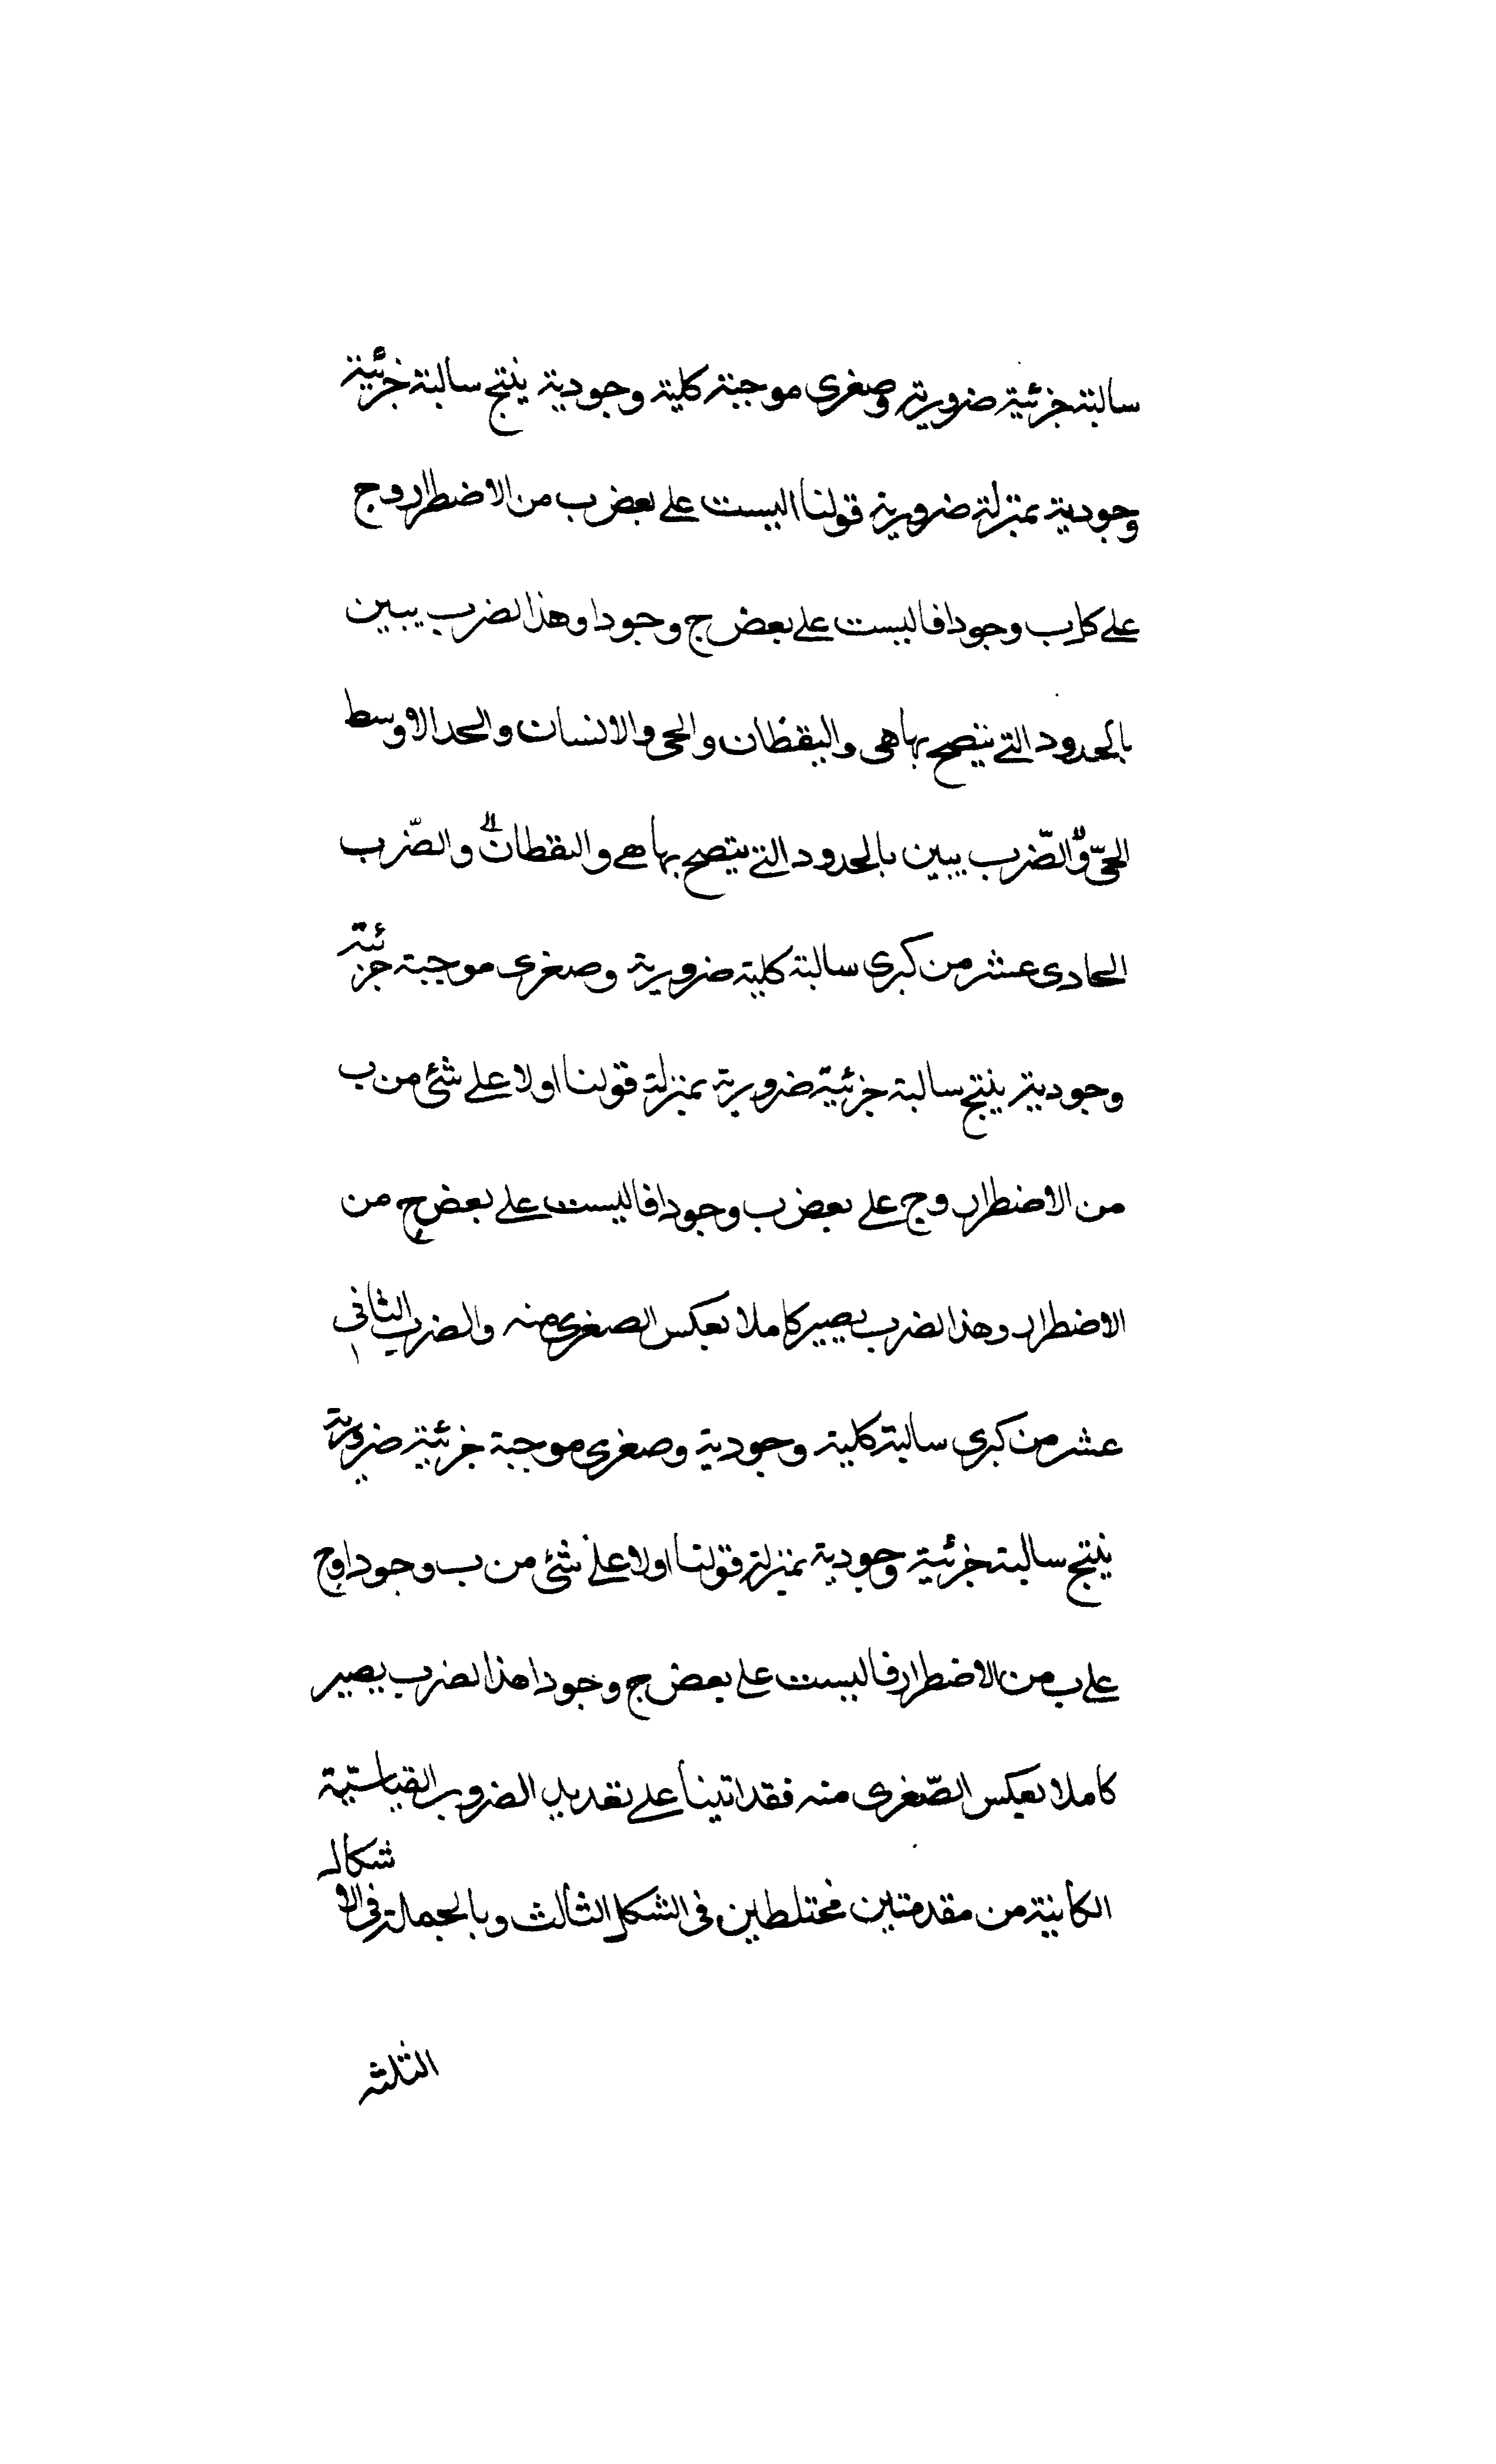 سالبة جزئية ضرورية وصغرى موجبة كلية وجودية ينتج سالبة جزئية
وجودية بمنزلة ضرورية قولنا اليست على بعض ب من الاضطرار وج
على كل ب وجودا فاليست على بعض ج وجودا وهذا لضرب يبين
بالحدود التي يتصح بها هى واليقظان والحى والانسان والحد الاوسط
الحىّ والضّرب يبين بالحدود التي يتصح بها هي واليقطان والضّرب
الحادى عشر من كبرى سالبة كلية ضرورية وصغرى موجبة جزئية
وجودية ينتج سالبة جزئية ضرورية بمنزلة قولنا اولا على شئ من ب
من الاضطرار وج على بعض ب وجودا فاليست على بعض ج من
الاضطرار وهذا لضرب يصير كاملا بعكس الصغرى منه والضرب الثانى
عشر من كبرى سالبة كلية وجودية وصغرى موجبة جزئية ضرورية
ينتج سالبة جزئية وجودية بمنزلة قولنا اولا على شئ من ب وجودا وج
على ب من الاضطرار فاليست على بعض ج وجودا هذا لضرب يصير
كاملا بعكس الصّغرى منه فقد اتينا على تعديل الضروب القياسيّة
الكائنة من مقدمتين مختلطين فى الشكل الثالث وبالجملة فى الاشكال
الثلثه